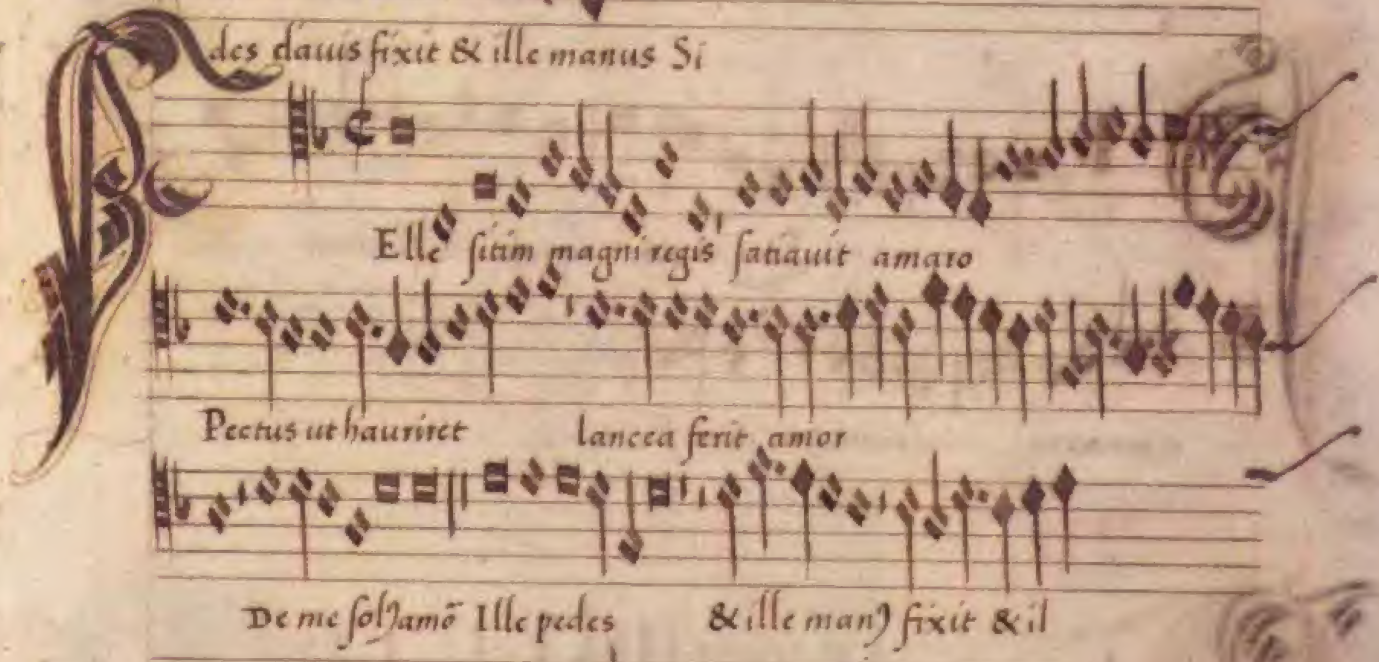 des clauis fixit & ille manus Si
Elle sitim magni regis satiauit amaro
Pectus ut hauriret lancea ferit amor
De me solꝰ amō Ille pedes & ille manꝰ fixit & il